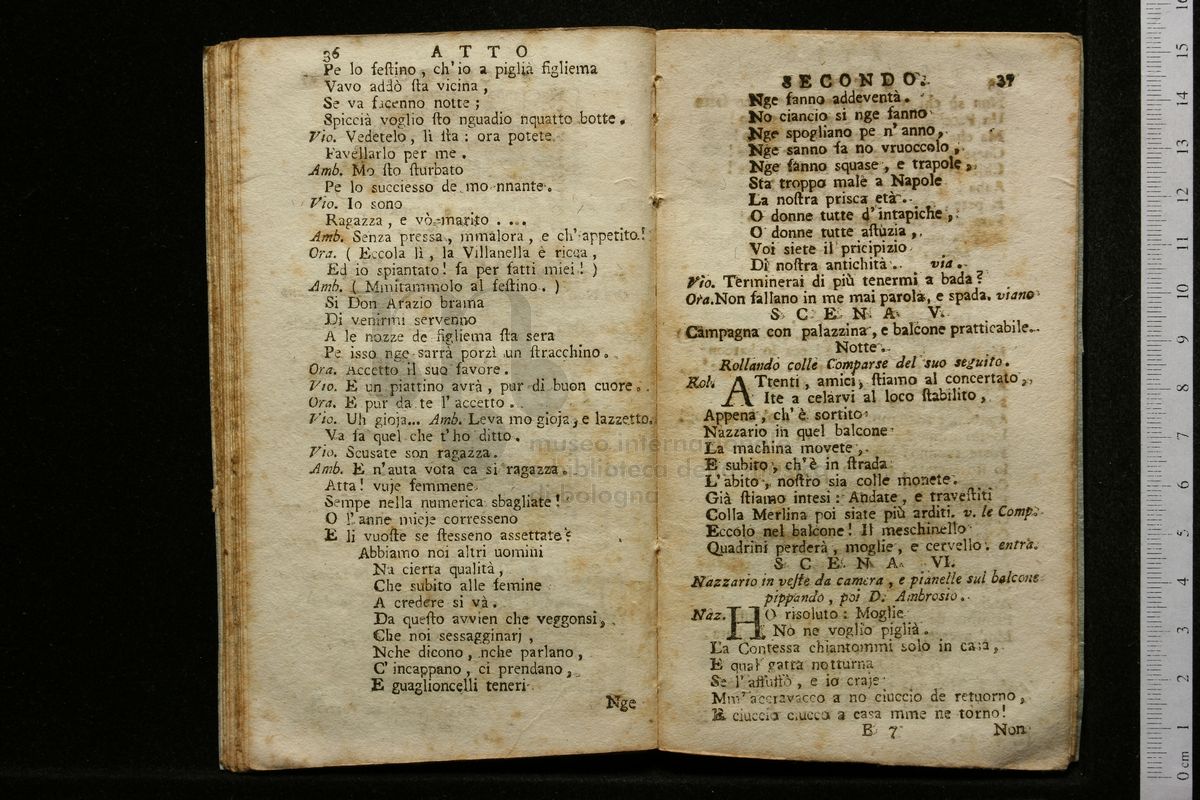 36 ATTO
Pe lo feſtino, ch'io a piglià figliema
Vavo addò ſta vicina,
Se va facenno notte;
Spiccià voglio ſto nguadio nquatto botte.
Vio. Vedetelo, lì ſta: ora potete
Favellarlo per me.
Amb. Mo ſto ſturbato
Pe lo succieſso de mo nnante.
Vio. Io sono
Ragazza, e vò marito ....
Amb. Senza pressa, mmalora, e ch'appetito!
Ora. ( Eccola lì, la Villanella è ricca,
Ed io spiantato! fa per fatti miei! )
Amb. ( Mmitammolo al feſtino. )
Si Don Arazio brama
Di venirmi servenno
A le nozze de figliema ſta sera
Pe isso nge sarrà porzì un ſtracchino.
Ora. Accetto il suo favore.
Vio. E un piattino avrà, pur di buon cuore.
Ora. E pur da te l'accetto.
Vio. Uh gioja... Amb. Leva mo gioja, e lazzetto.
Va fa quel che t'ho ditto.
Vio. Scusate son ragazza.
Amb. E n'auta vota ca si ragazza.
Atta! vuje femmene
Sempe nella numerica sbagliate!
O l'anne mieje corresseno
E li vuoſte se ſtesseno assettate!
Abbiamo noi altri uomini
Na cierta qualità,
Che subito alle femine
A credere si và.
Da queſto avvien che veggonsi,
Che noi sessagginarj,
Nche dicono, nche parlano,
C'incappano, ci prendano,
E guaglioncelli teneri
Nge
SECONDO. 37
Nge fanno addeventà.
No ciancio si nge fanno
Nge spogliano pe n'anno,
Nge sanno fa no vruoccolo,
Nge fanno squase, e trapole,
Sta troppo male a Napole
La noſtra prisca età.
O donne tutte d'intapiche,
O donne tutte aſtuzia,
Voi siete il pricipizio
Di noſtra antichità. via.
Vio. Terminerai di più tenermi a bada?
Ora. Non fallano in me mai parola, e spada. viano
SCENA V.
Campagna con palazzina, e balcone pratticabile.
Notte.
Rollando colle Comparse del suo seguito.
Rol. ATtenti, amici, ſtiamo al concertato,
Ite a celarvi al loco ſtabilito,
Appena, ch'è sortito
Nazzario in quel balcone
La machina movete,
E subito, ch'è in ſtrada
L'abito noſtro sia colle monete.
Già ſtiamo intesi: Andate, e traveſtiti
Colla Merlina poi siate più arditi. v. le Comp.
Eccolo nel balcone! Il meschinello
Quadrini perderà, moglie, e cervello. entra.
SCENA VI.
Nazzario in veſte da camera, e pianelle sul balcone
pippando, poi D. Ambrosio.
Naz. HO risoluto: Moglie
No ne voglio piglià.
La Contessa chiantommi solo in casa,
E qual gatta notturna
Se l'affuffò, e io craje
Mm'accravacco a no ciuccio de retuorno,
E ciuccio ciucco a casa mme ne torno!
B 7 Non
museo internaz
biblioteca de
di bologna
0 cm 1 2 3 4 5 6 7 8 9 10 11 12 13 14 15 16